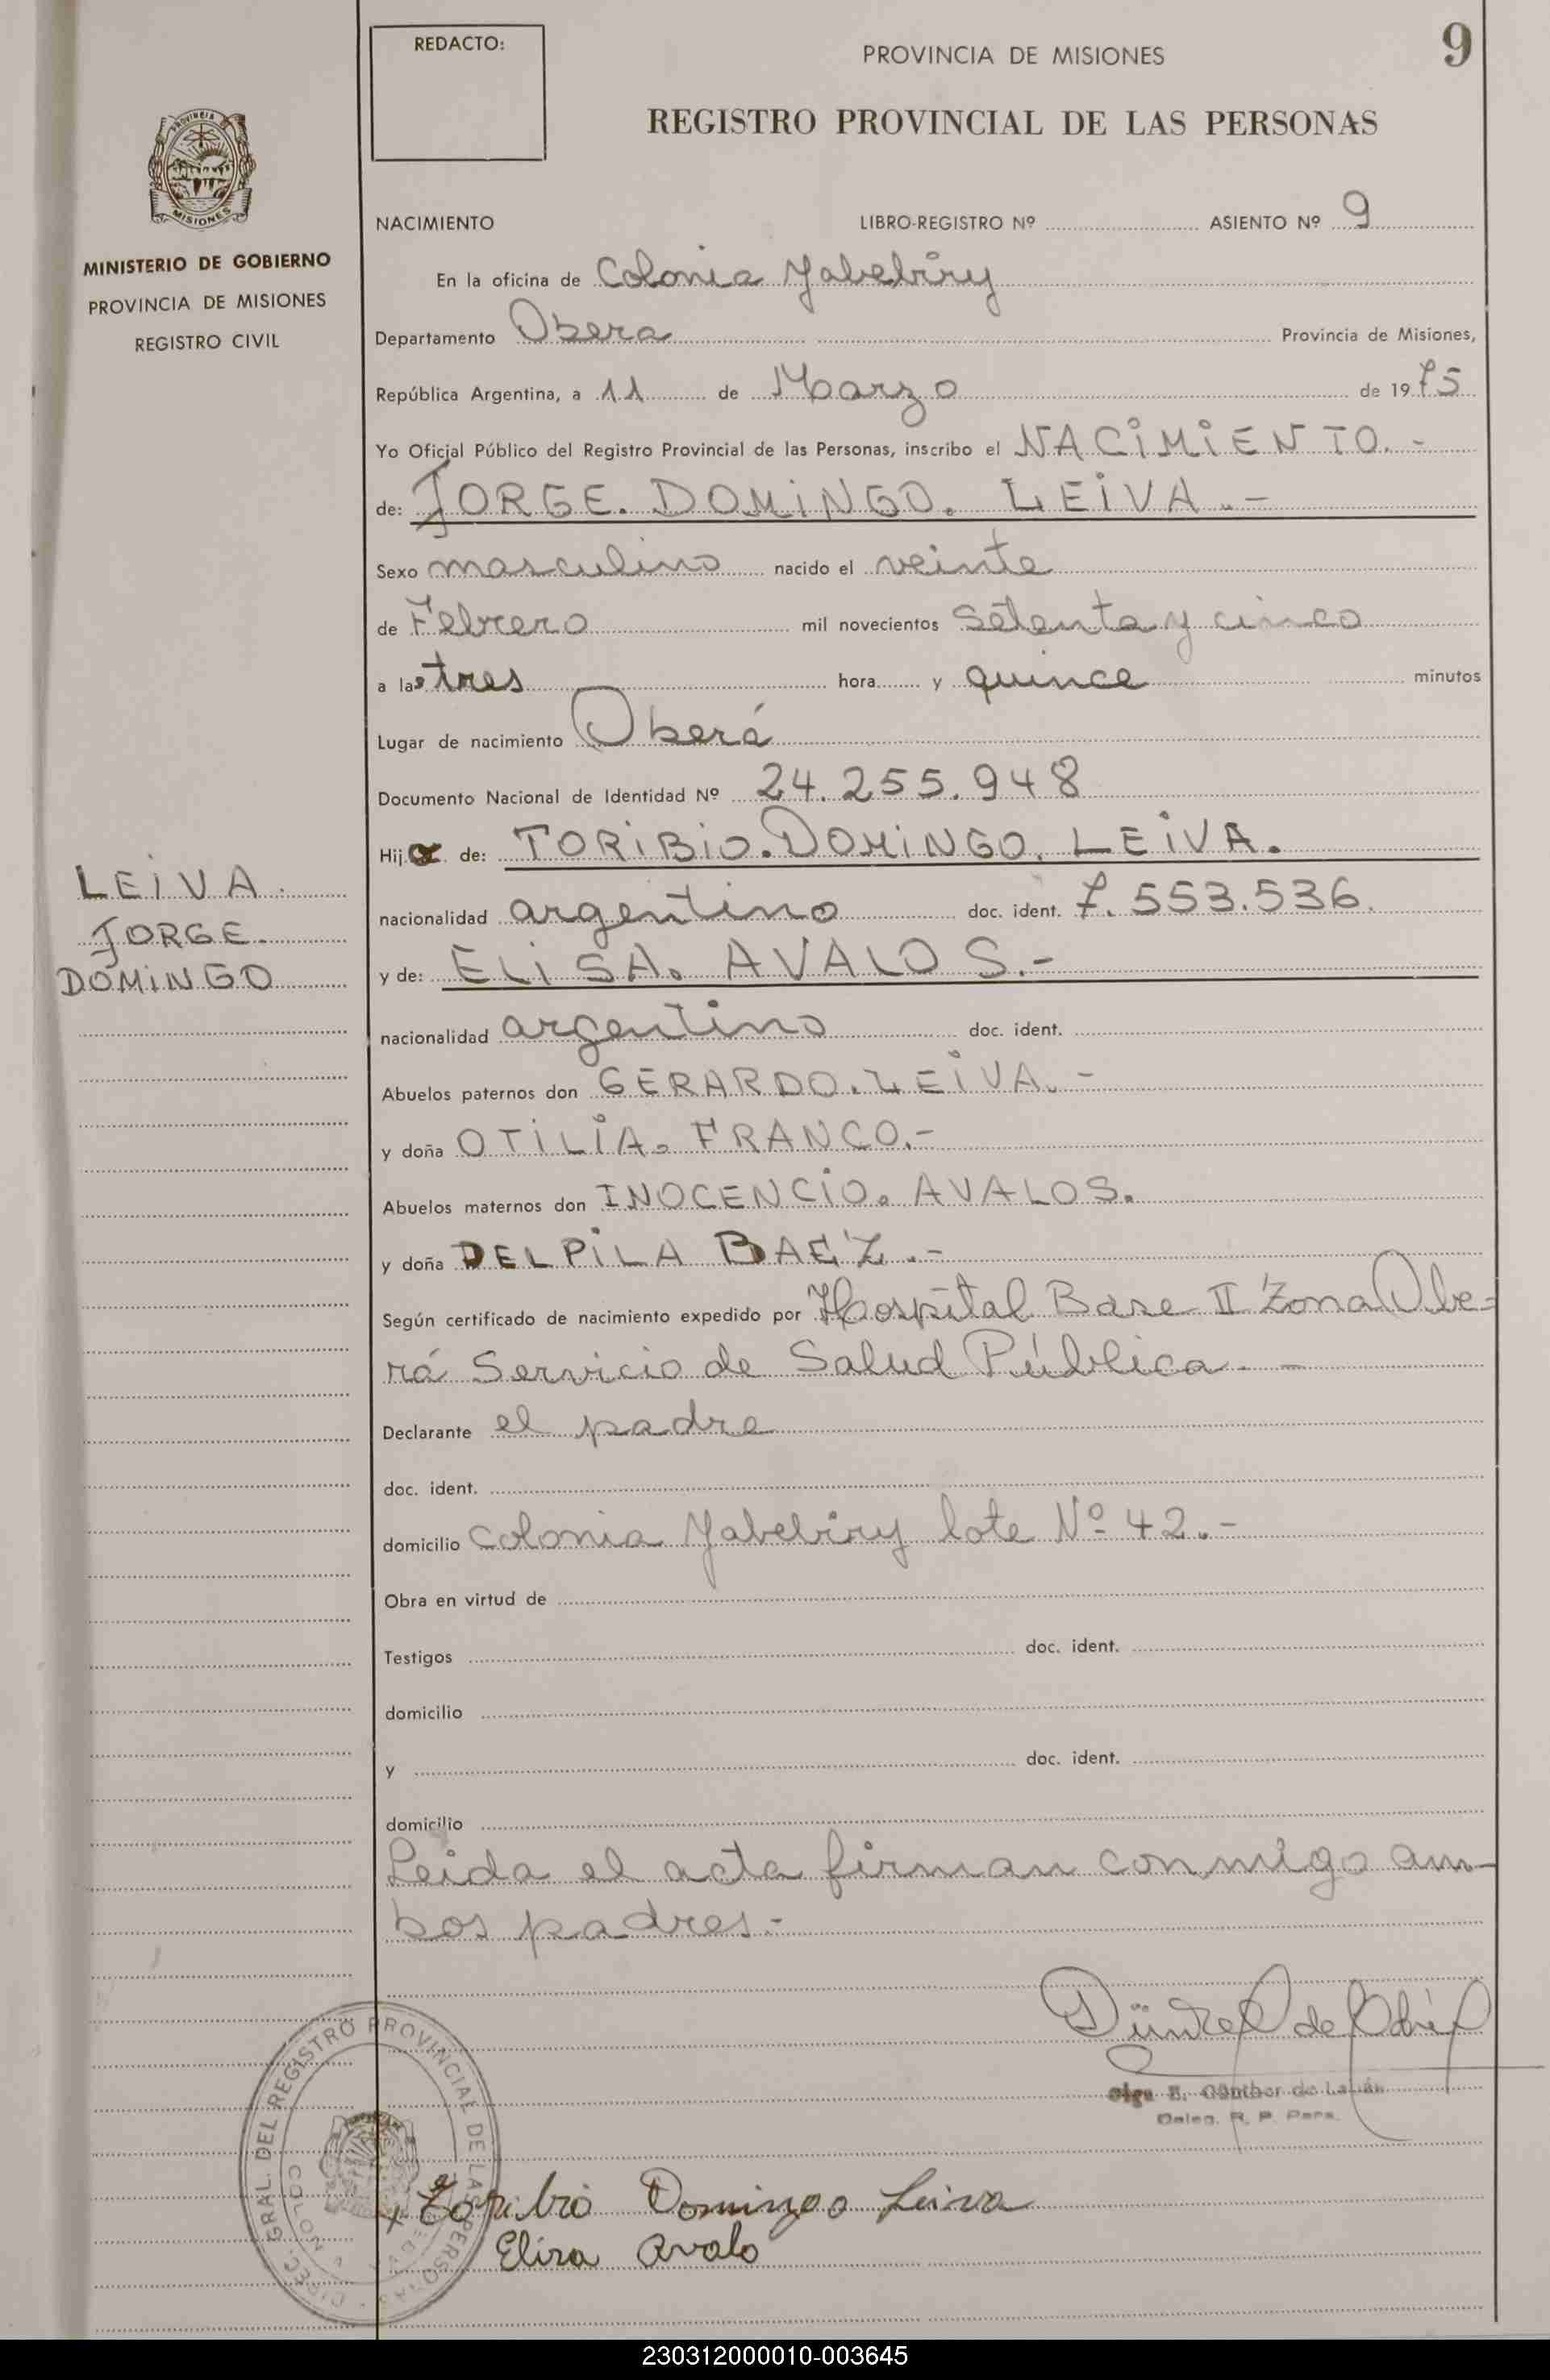 REDACTO:
PROVINCIA DE MISIONES
9
REGISTRO PROVINCIAL DE LAS PERSONAS
PROVINCIA
MISIONES
MINISTERIO DE GOBIERNO
PROVINCIA DE MISIONES
REGISTRO CIVIL
NACIMIENTO LIBRO-REGISTRO Nº ASIENTO Nº 9
En la oficina de Colonia Yabebiry
Departamento Obera Provincia de Misiones,
República Argentina, a 11 de Marzo de 1975
Yo Oficial Público del Registro Provincial de las Personas, inscribo el NACIMIENTO.-
de: JORGE. DOMINGO. LEIVA.-
Sexo masculino nacido el veinte
de Febrero mil novecientos setenta y cinco
a las tres hora y quince minutos
Lugar de nacimiento Oberá
Documento Nacional de Identidad Nº 24.255.948
Hijo de: TORIBIO. DOMINGO. LEIVA.
nacionalidad argentino doc. ident. 7.553.536.
y de: ELISA. AVALOS.-
nacionalidad argentino doc. ident.
Abuelos paternos don GERARDO. LEIVA.-
y doña OTILIA. FRANCO.-
Abuelos maternos don INOCENCIO. AVALOS.
y doña DELPILA BAEZ.-
Según certificado de nacimiento expedido por Hospital Base II Zona Obe=
rá Servicio de Salud Pública.-
Declarante el padre
doc. ident.
domicilio Colonia Yabebiry lote Nº 42.-
Obra en virtud de
Testigos doc. ident.
domicilio
y doc. ident.
domicilio
Leida el acta firman conmigo am-
bos padres-
LEIVA
JORGE
DOMINGO
Olga E. Günther de
Deleg. R. P. Pers.
DIREC. GRAL. DEL REGISTRO PROVINCIAL DE LAS PERSONAS
Toribio Domingo Leiva
Elisa Avalo
230312000010-003645